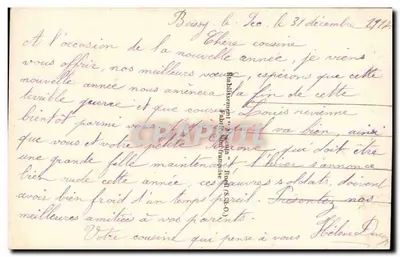 Boissy le Sec le 31 décembre 1914
Chère cousine
A l'occasion de la nouvelle année, je viens
vous offrir, nos meilleurs vœux, espérons que cette
nouvelle année nous amènera la fin de cette
terrible guerre et que cousin Louis revienne
bientôt parmi va bien, ainsi
que vous et votre petite qui doit être
une grande fille maintenant l'hiver s'annonce
bien rude cette année, ces pauvres soldats, doivent
avoir bien froid d'un temps pareil. Présentez nos
meilleures amitiés à vos parents.
Votre cousine qui pense à vous Hélène